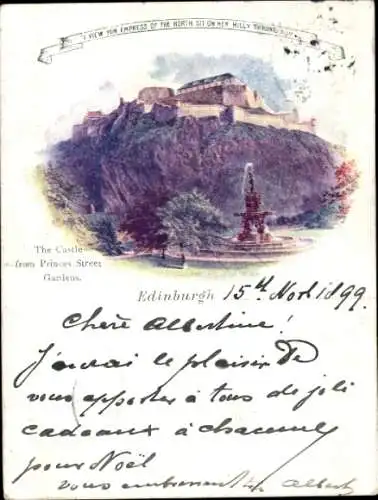 I VIEW YON EMPRESS OF THE NORTH SIT ON HER HILLY THRONE
The Castle
from Princes Street
Gardens.
Edinburgh 15th Nov 1899.
Chère Albertine!
J'aurai le plaisir de
vous apporter à tous de joli
cadeaux à chacune
pour Noël
vous embrassant Albert